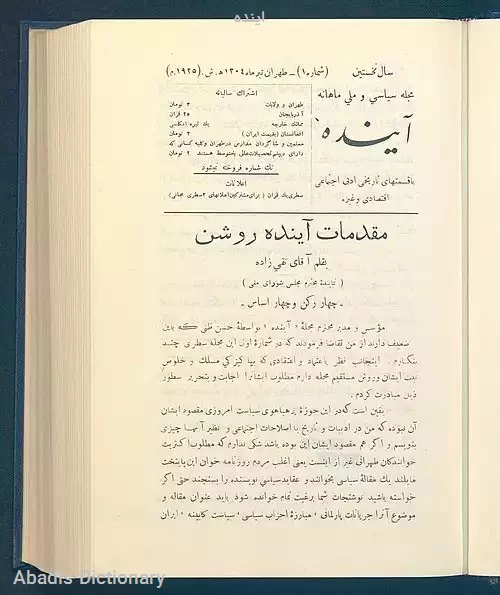 آینده
سال نخستین (شماره ۱) ـ طهران تیر ماه ۱۳۰٤ ه‍. ش. (۱۹۲٥ م.)
مجله سیاسی و ملی ماهانه
آینده
باقسمتهای تاریخی ادبی اجتماعی
اقتصادی وغیره
اشتراك سالیانه
طهران و ولایات ۳ تومان
آذربایجان ۲٥ قران
ممالك خارجه یك لیره انگلیسی
افغانستان (بقیمت ایران) ۳ تومان
معلمین و شاگردان مدارس درطهران وکلیه کسانی که
دارای دیپلم تحصیلات عالی یامتوسط هستند ۲ تومان
تك شماره فروخته نمیشود
اعلانات
سطری یك قران (برای مشترکین اعلانهای ۲ سطری مجانی)
مقدمات آینده روشن
بقلم آقای تقی زاده
( نماینده محترم مجلس شورای ملی )
ـ چهار رکن و چهار اساس ـ
مؤسس و مدیر محترم مجلهٔ « آینده » بواسطهٔ حسن ظنی که باین
ضعیف دارند از من تقاضا فرمودند که در شمارهٔ اول این مجله سطری چند
بنگارم . اینجانب نظر باعتماد و اعتقادی که بپاکیزگی مسلك و خلوص
نیت ایشان وروش مستقیم مجله دارم مطلوب ایشانرا اجابت و بتحریر سطور
ذیل مبادرت کردم .
یقین است که در این حوزهٔ پرهیاهوی سیاست امروزی مقصود ایشان
آن نبوده که من در ادبیات و تاریخ یا اصلاحات اجتماعی و نظیر آنها چیزی
بنویسم و اگر هم مقصود ایشان این بوده باشد شکی ندارم که مطلوب اکثریت
خوانندگان طهرانی غیر از اینست یعنی اغلب مردم روزنامه خوان این پایتخت
مایلند یك مقالهٔ سیاسی بخوانند و عقاید سیاسی نویسنده را بسنجند حتی اگر
خواسته باشید نوشتجات شما برغبت تمام خوانده شود باید عنوان مقاله و
موضوع آنرا جریانات پارلمانی ، مبارزهٔ احزاب سیاسی ، سیاست کابینه ، ایران
Abadis Dictionary